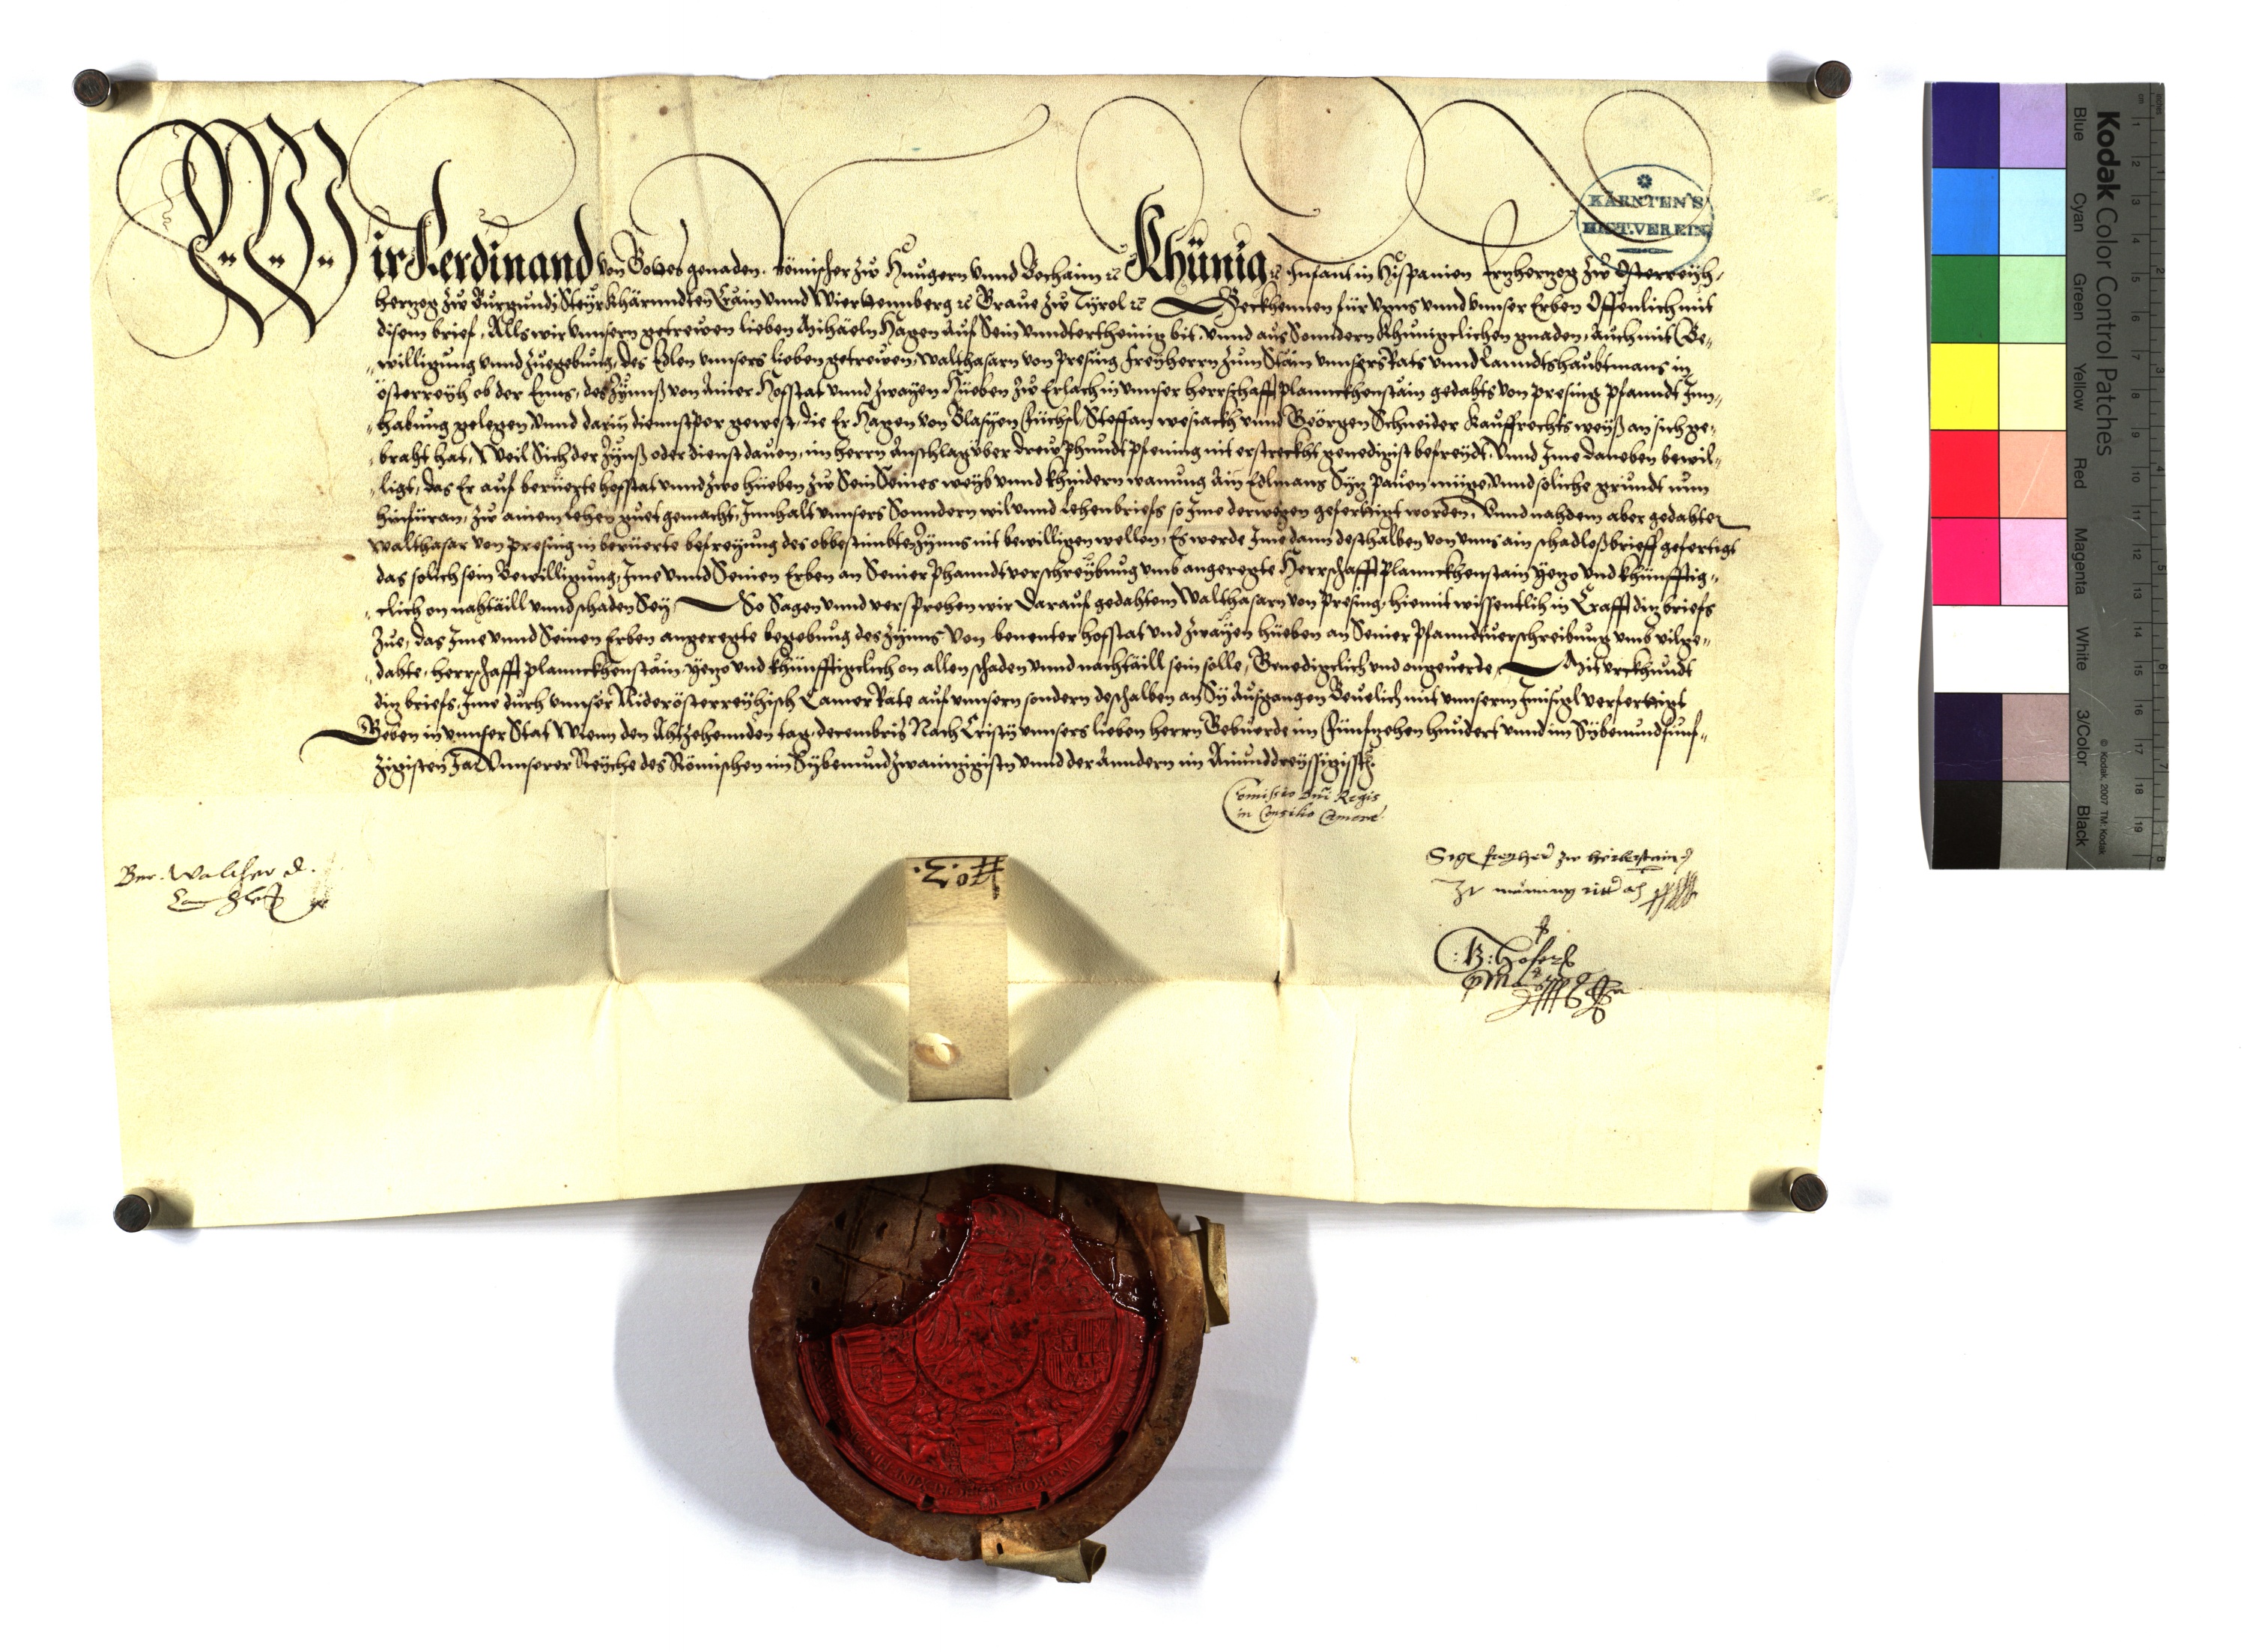 Wir Ferdinand von Gottes genaden. Römischer zw Hungern vnnd Bechaim ꝛc Khünig ꝛc Infant in Hispanien Ertzhertzog zw Osterreych,
hertzog zw Burgundi Steyr Khärnndten Crain vnnd Wiertemberg ꝛc Graue zw Tyrol ꝛc Beckhennen für vnns vnnd vnnser Erben Offenlich mit
disem brief, Alls wir vnnsern getrewen lieben Michäeln Hagen Auf Sein vnndterthenig bit, vnnd aus Sonndern Khunigclichen gnaden, Auch mit Be„
„willigung vnnd zuegebung, des Edlen vnnsers lieben getrewen, Walthasarn von Presing Freyherrn zum Stain vnnsers Rats vnnd Lanndtshaubtmans in
Österreych ob der Enns, des Zynnß von Ainer Hofstat vnnd zwayen Hüeben zw Erlach in vnnser herrschafft Planckhenstain gedachts von Presing Pfanndt Inn„
„habung gelegen, vnnd darin diennstper gewest, die Er Hagen von Blasyen Füchsl, Steffan wesiackh vnnd Geörgen Schneider Kauffrechts weyß an sich ge„
„braht hat, Weil Sich der Zynß oder dienst dauon, im herrn Anschlag über drew Phundt Pfening nit erstreckht genedigist befreydt, vnnd Ime daneben bewil„
„ligt, das Er auf berüerte hofstat vnnd zwo hüeben zw Sein Seines weyb vnnd Khindern wanung Ain Edlmans Sytz pauen müge, vnnd soliche grundt nun
hinfüran, zw ainem Lehen guet gemacht, Innhalt vnnsers Sonndern wil vnnd Lehenbriefs so Ime derwegen gefertigt worden, Vnnd nahdem aber gedahter
Walthasar von Presing in berüerte befreyung des obbestimbten Zynns nit bewilligen wellen, Es werde Ime dann desthalben von vnns ain schadloßbrieff gefertigt
das solich sein Bewilligung, Ime vnnd Seinen Erben an Seiner Phanndtverschreybung vmb angeregte Herrschafft Planckhenstain Yetzo vnd khünfftig„
„clich on nahtäill vnnd schaden Sey, So Sagen vnnd versprechen wir Darauf gedahtem Walthasarn von Presing, hiemit wissentlich in Crafft ditz briefs
Zue, das Ime vnnd Seinen Erben angeregte begebung des Zynns von benenter hofstat vnd zwayen hüeben an Seiner Pfanndtuerschreibung vmb vilge„
„dahte, herrschafft Planckhenstain, Yetzo vnd khünfftigclich on allen schaden vnnd nachtäill sein solle, Genedigclich vnd ongeuerde, Mit vrckhundt
ditz briefs, Ime durch vnnser Niderösterreychisch Camer Räte auf vnnsern sondern deshalben an Sy Ausgangen Beuelich mit vnnserm Innsigl verfertigt
Geben in vnnser Stat Wienn den Ahtzehennden tag, decembris Nach Cristy vnnsers lieben herrn Gebuerde im Fünfzehen hundert vnnd im Sybenundfunf„
zigisten Jar Vnnserer Reyche des Römischen im Sybenundzwaintzigisten vnnd der Anndern im Ainunddreyssigissten.
Comissio dni Regis
in Consilio Camere
KÄRNTEN'S
HIST. VEREIN
Ber. Walther d.
Cantzler
Sigm freyherr zw herberstain
No: 3.
B: Hofer
Kodak Color Control Patches
Blue Cyan Green Yellow Red Magenta White 3/Color Black
© Kodak, 2007 TM: Kodak
cm 1 2 3 4 5 6 7 8 9 10 11 12 13 14 15 16 17 18 19
inches 1 2 3 4 5 6 7 8